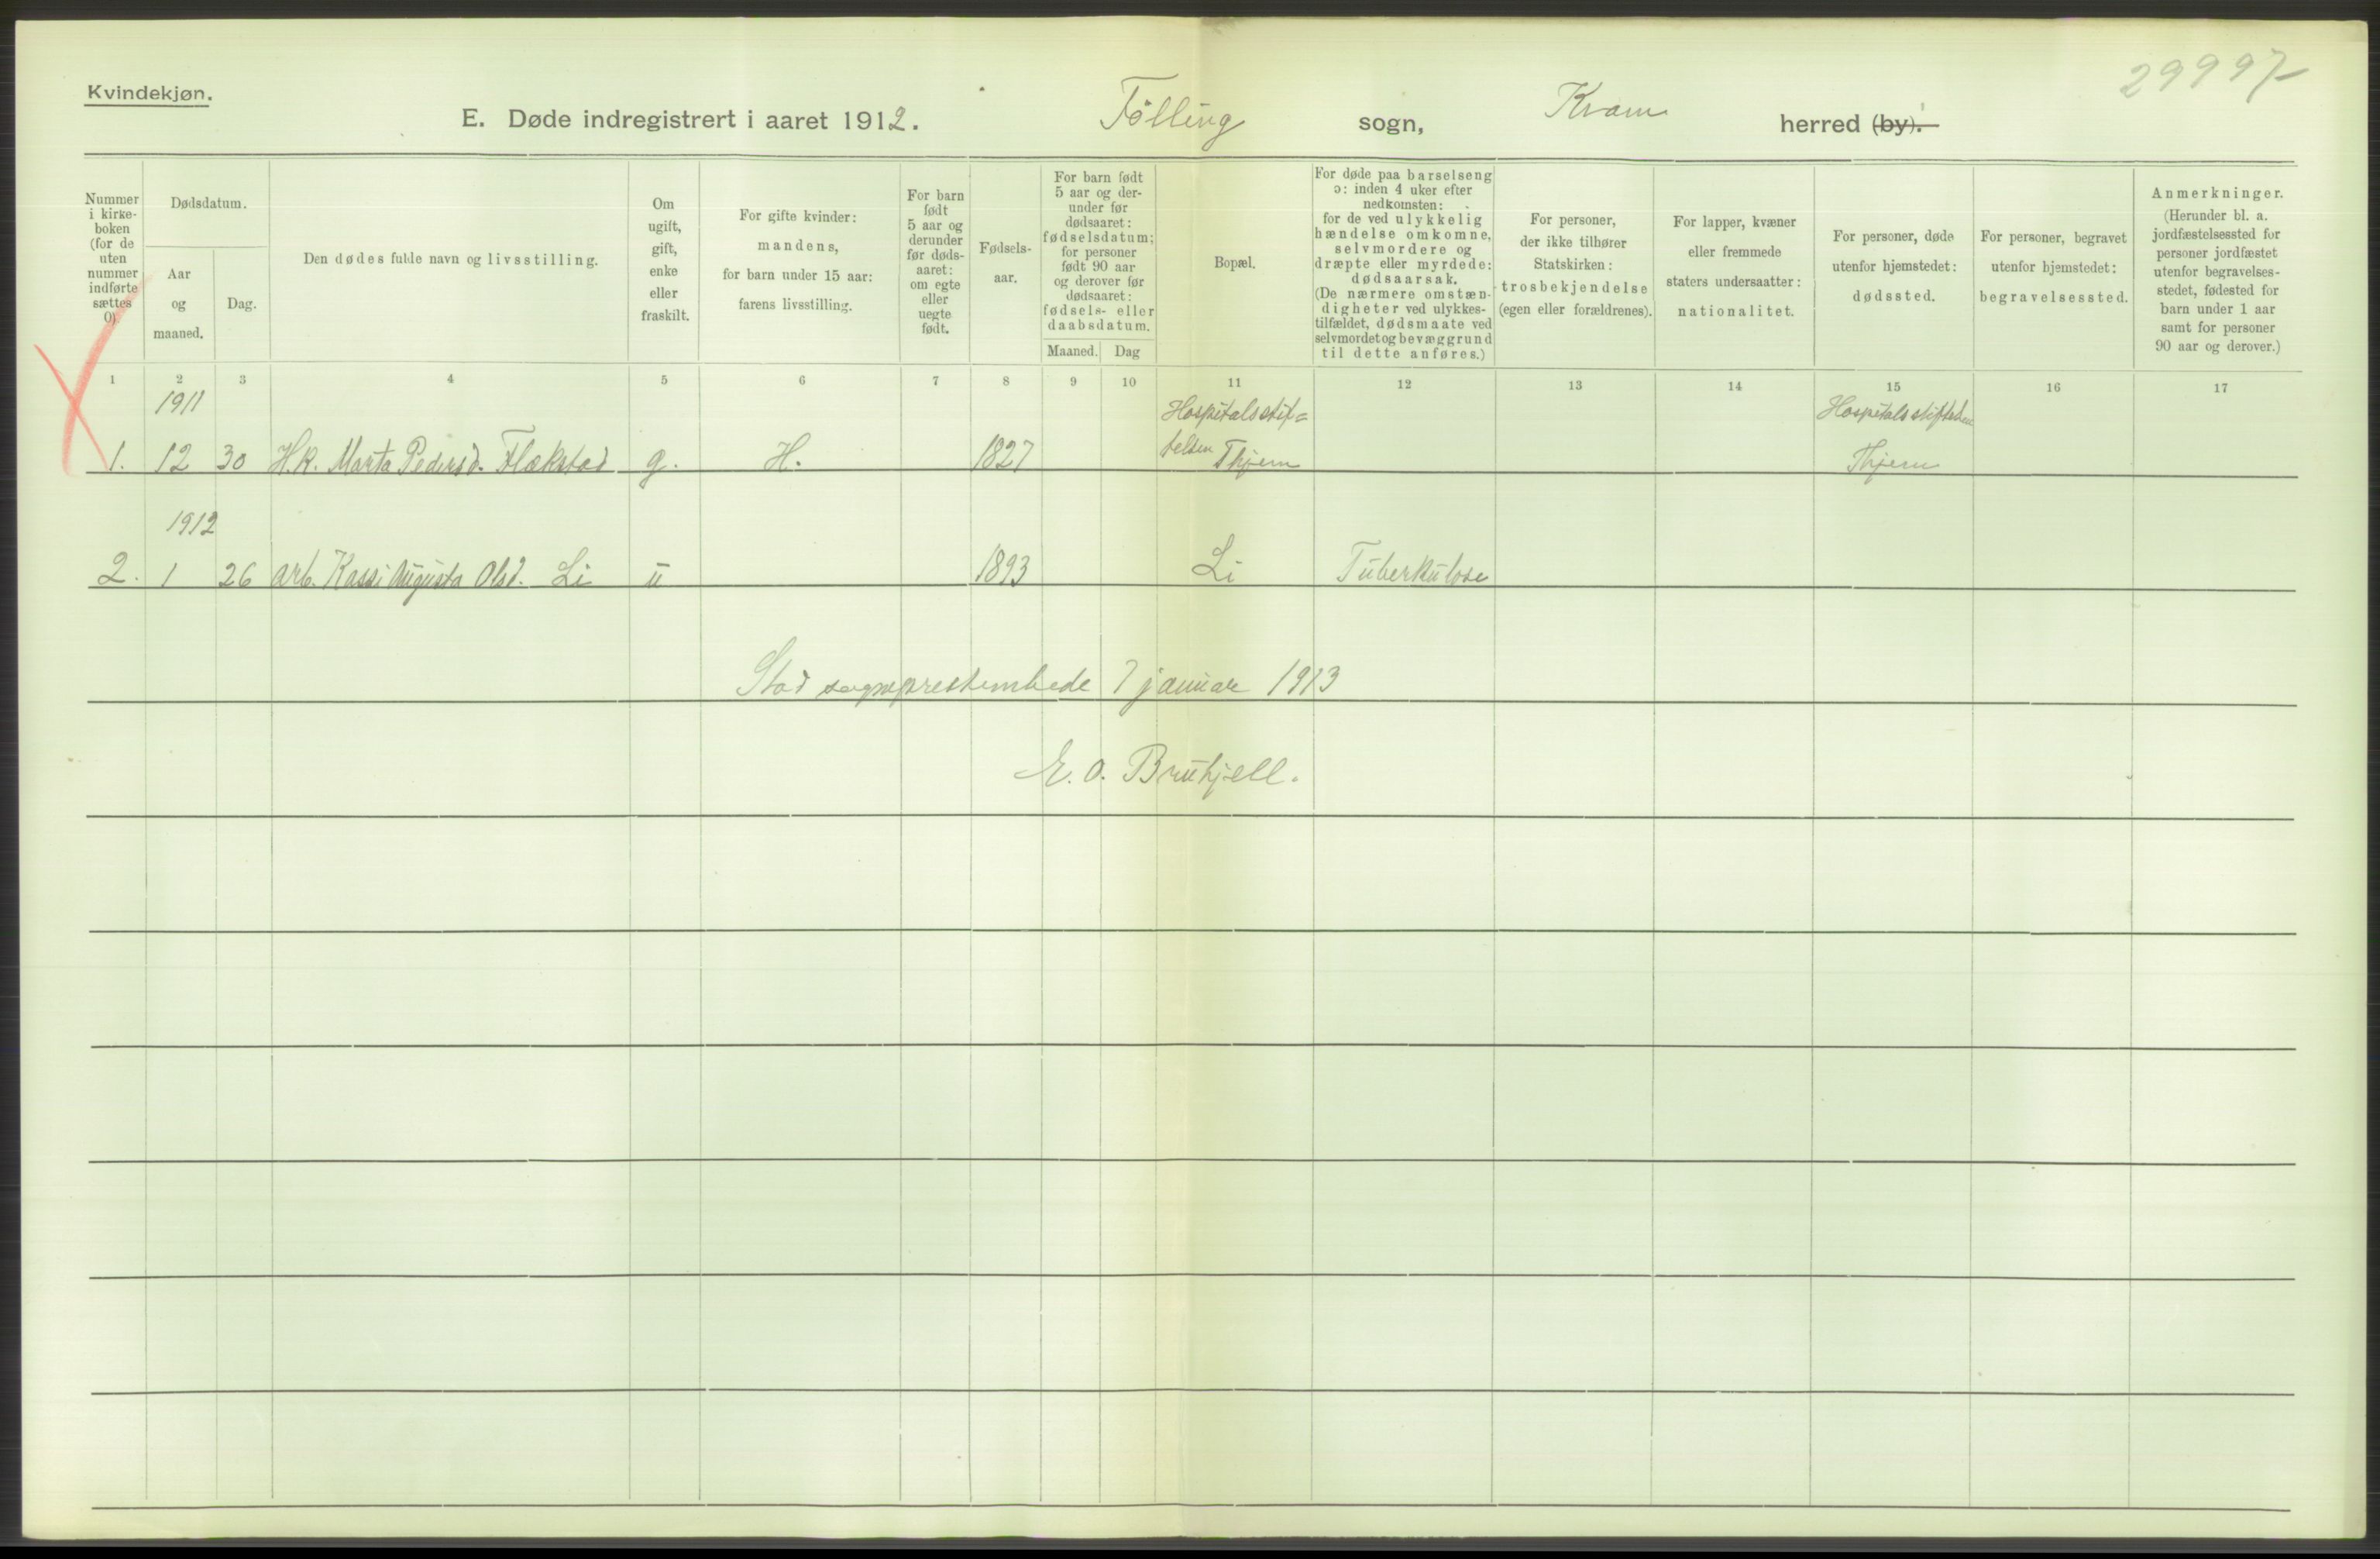 29997
Kvindekjøn.
E. Døde indregistrert i aaret 1912. Følling sogn, Kvam herred (by).
Nummer i kirke-boken (for de uten nummer indførte sættes 0).
Dødsdatum.
Aar og maaned.
Dag.
Den dødes fulde navn og livsstilling.
Om ugift, gift, enke eller fraskilt.
For gifte kvinder: mandens, for barn under 15 aar: farens livsstilling.
For barn født 5 aar og derunder før døds-aaret: om egte eller uegte født.
Fødsels-aar.
For barn født 5 aar og der-under før dødsaaret: fødselsdatum; for personer født 90 aar og derover før dødsaaret: fødsels- eller daabsdatum.
Maaned. Dag
Bopæl.
For døde paa barselseng ɔ: inden 4 uker efter nedkomsten: for de ved ulykkelig hændelse omkomne, selvmordere og dræpte eller myrdede: dødsaarsak. (De nærmere omstæn-digheter ved ulykkes-tilfældet, dødsmaate ved selvmordet og bevæggrund til dette anføres.)
For personer, der ikke tilhører Statskirken: trosbekjendelse (egen eller forældrenes).
For lapper, kvæner eller fremmede staters undersaatter: nationalitet.
For personer, døde utenfor hjemstedet: dødssted.
For personer, begravet utenfor hjemstedet: begravelsessted.
Anmerkninger. (Herunder bl. a. jordfæstelsessted for personer jordfæstet utenfor begravelses-stedet, fødested for barn under 1 aar samt for personer 90 aar og derover.)
1 2 3 4 5 6 7 8 9 10 11 12 13 14 15 16 17
1911 Hospitalsstif= Hospitalsstiftelsen
1. 12 30 H.K. Marta Pedersd. Flekstad g. H. 1827 telsen Thjem Thjem
1912
2. 1 26 Arb. Kassi Augusta Olsd. Li u 1893 Li Tuberkulose
Stod sogneprestembede 7 januar 1913
E. O. Bruhjell.